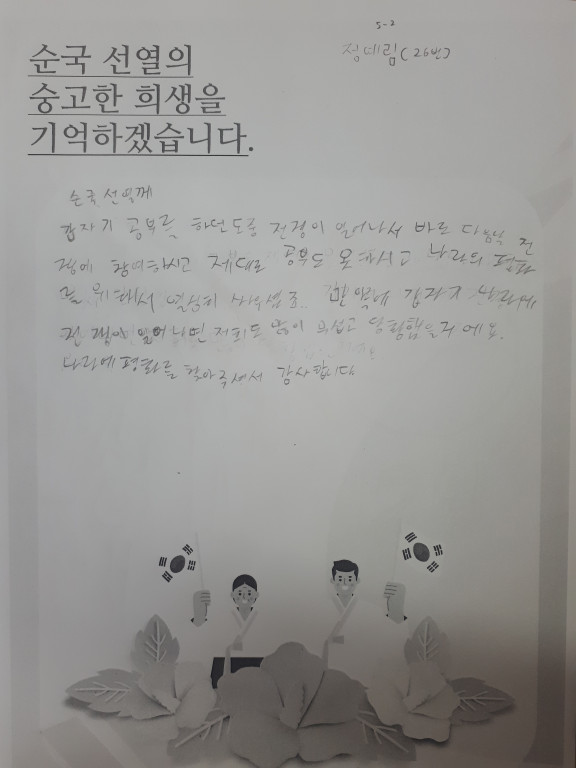 5-2
정예림(26번)
순국 선열의
숭고한 희생을
기억하겠습니다.
순국선열께
갑자기 공부를 하던도중 전쟁이 일어나서 바로 다음날 전
쟁에 참여하시고 제대로 공부도 못하시고 나라의 평화
를 위해서 열심히 싸우셨죠. 만약에 갑자기 나라에
전쟁이 일어나면 저희도 많이 무섭고 당황했을거에요.
나라에평화를 찾아주셔서 감사합니다